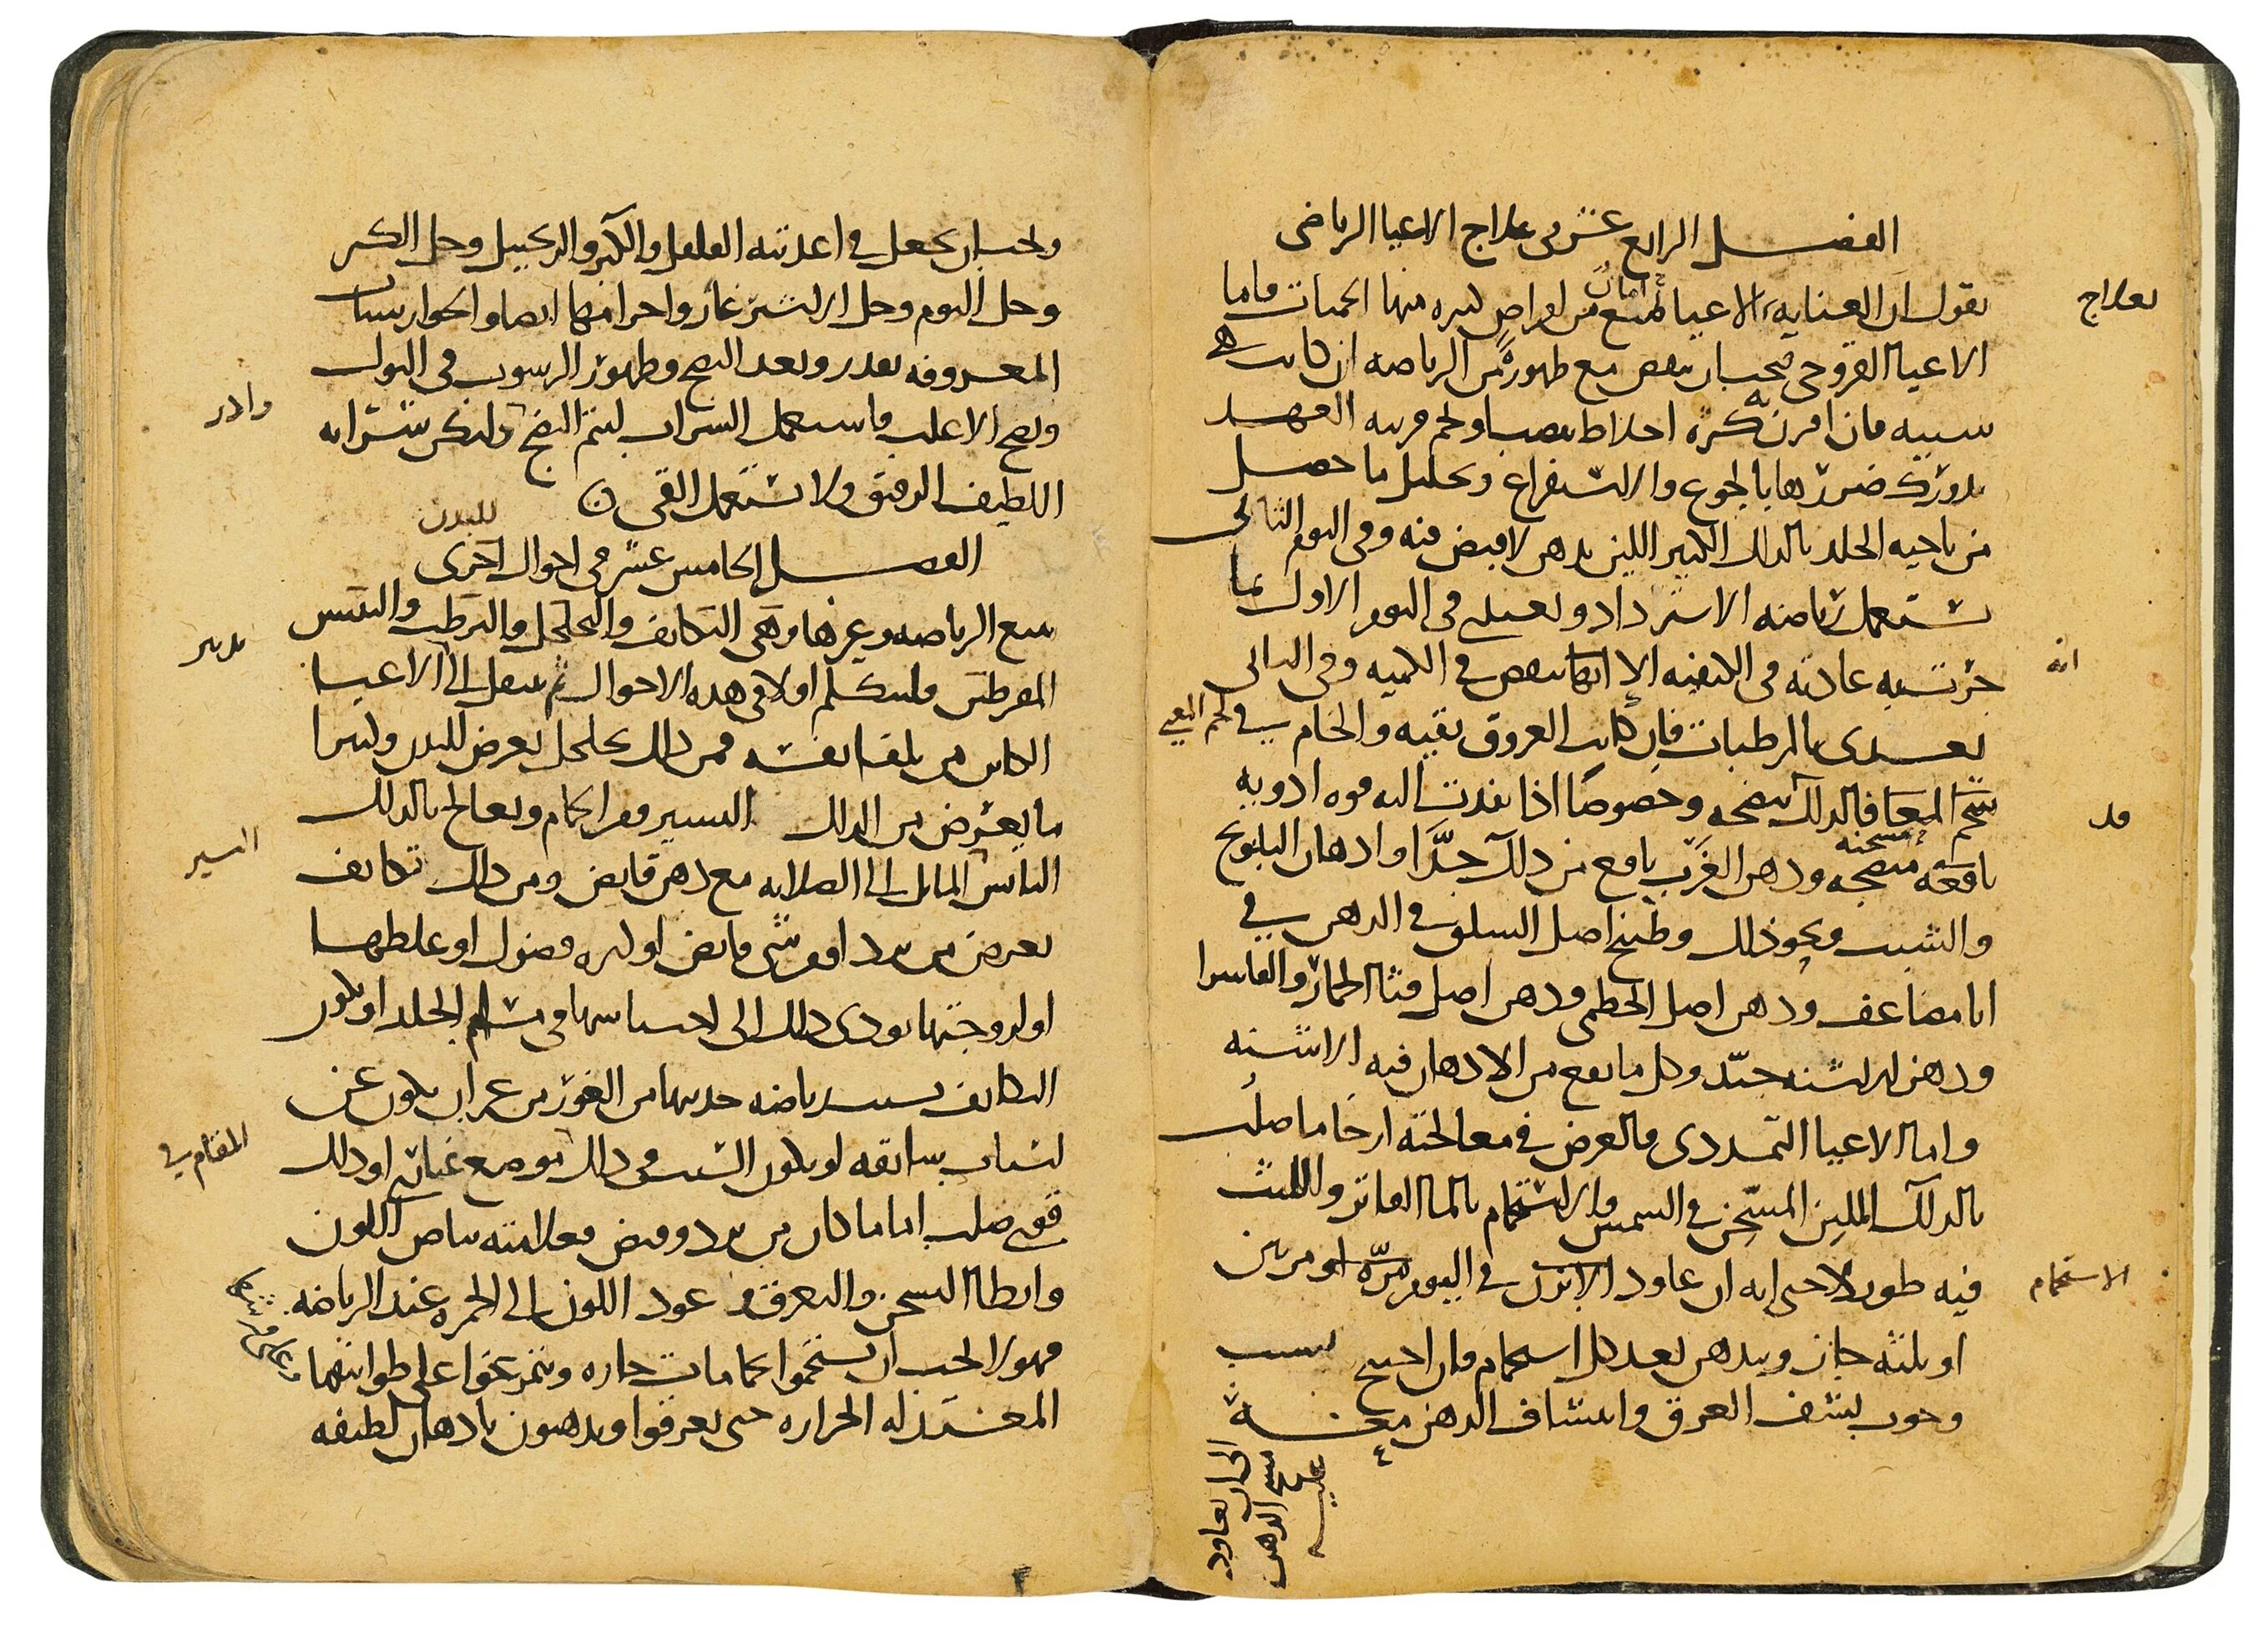 الفصل الرابع عشر في علاج الاعيا الرياضي
نقول ان العناية بالاعيا تمنع من امراض كثيرة منها الحميات فاما
الاعيا القروحي فيجب ان ينقص مع ظهوره من الرياضة ان كانت هي
سببه فان اقترن به كثرة اخلاط او تخم قريبة العهد
تدورك ضررها بالجوع والاستفراغ وتحليل ما حصل
من ناحية الجلد بالدلك الكثير اللين بدهن لا قبض فيه وفي اليوم الثالث
تستعمل رياضة الاسترداد ويغذى في اليوم الاول بما
جرت به عادته في الكيفية الا انه ينقص في الكمية وفي الثاني
يغذى بالمرطبات فان كانت العروق نقية والخام في
شحم المعا فالدلك ينضجه وخصوصا اذا نفذت اليه قوة ادوية
نافعة مسخنة ودهن الغرب نافع من ذلك جدا وادهان البابونج
والشبث ونحو ذلك وطبيخ اصل السلق في الدهن في
انا مضاعف ودهن اصل الخطمي ودهن اصل قثا الحمار والفاشرا
ودهن الاشنة جيد وكل ما يقع من الادهان فيه الاشنة
واما الاعيا التمددي فالغرض في معالجته ارخا ما صلب
بالدلك اللين المسخن في الشمس والاستحمام بالما الفاتر واللبث
فيه طويلا حتى انه ان عاود الابزن في اليوم مرة او مرتين
او ثلثة جاز ويدهن بعد كل استحمام فان احتيج بسبب
وجوب نشف العرق وانتشاف الدهن معه
الى ان يعاود
مسح الدهن
عليه
لعلاج
انه
قد
الاستحمام
ويجب ان يجعل في اغذيته الفلفل والكبر والزنجبيل وخل الكبر
وخل الثوم وخل الاشترغاز واجرامها ايضا والجوارشنات
المعروفة بقدر وبعد النضج وظهور الرسوب في البول
ونضج الاغلب فاستعمل الشراب ليتم النضج وليكن شرابه
اللطيف الرقيق ولا تستعمل القي
الفصل الخامس عشر في احوال اخرى للبدن
تتبع الرياضة وغيرها وهي التكاثف والتخلخل والترطب واليبس
المفرطين فلنتكلم اولا في هذه الاحوال ثم ننتقل الى الاعيا
الكاين من تلقا نفسه فمن ذلك تخلخل يعرض للبدن وكثيرا
ما يعرض من الدلك اليسير ومن الحمام ويعالج بالدلك
اليابس المايل الى الصلابة مع دهن قابض ومن ذلك تكاثف
يعرض من برد او من شي قابض او كثرة فضول او غلظها
او لزوجتها يودي ذلك الى احتباسها في مسام الجلد او يكون
التكاثف بسبب رياضة جذبتها من الغور من غير ان يكون عن
اسباب سابقة او يكون السبب في ذلك موضع غباري او دلك
قوي صلب اما ما كان من برد وقبض فعلامته بياض اللون
وابطا التسخن والتعرق وعود اللون الى الحمرة عند الرياضة
فهولا يجب ان يستحموا بحمامات حارة ويتمرغوا على طوابقها
المعتدلة الحرارة حتى يعرقوا ويدهنون بادهان لطيفة
وادر
تدبير
اليسير
المقام في